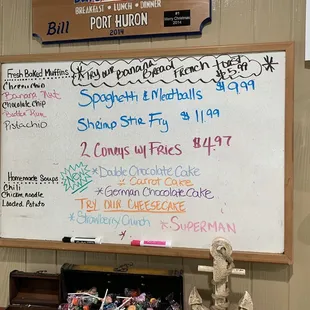 BREAKFAST • LUNCH • DINNER
PORT HURON
Bill
2014
Fresh Baked Muffins
Banana Nut
Chocolate Chip
Pistachio
Homemade Soups
Chili
Chicken noodle
Loaded Potato
*Try our Banana Bread French Toast*
$5.99
Spaghetti & Meatballs $9.99
Shrimp Stir Fry $11.99
2 Coneys w/ Fries $4.97
NEW
*Double Chocolate Cake
Carrot Cake
*German Chocolate Cake
TRY OUR CHEESECAKE
*Strawberry Crunch
*SUPERMAN